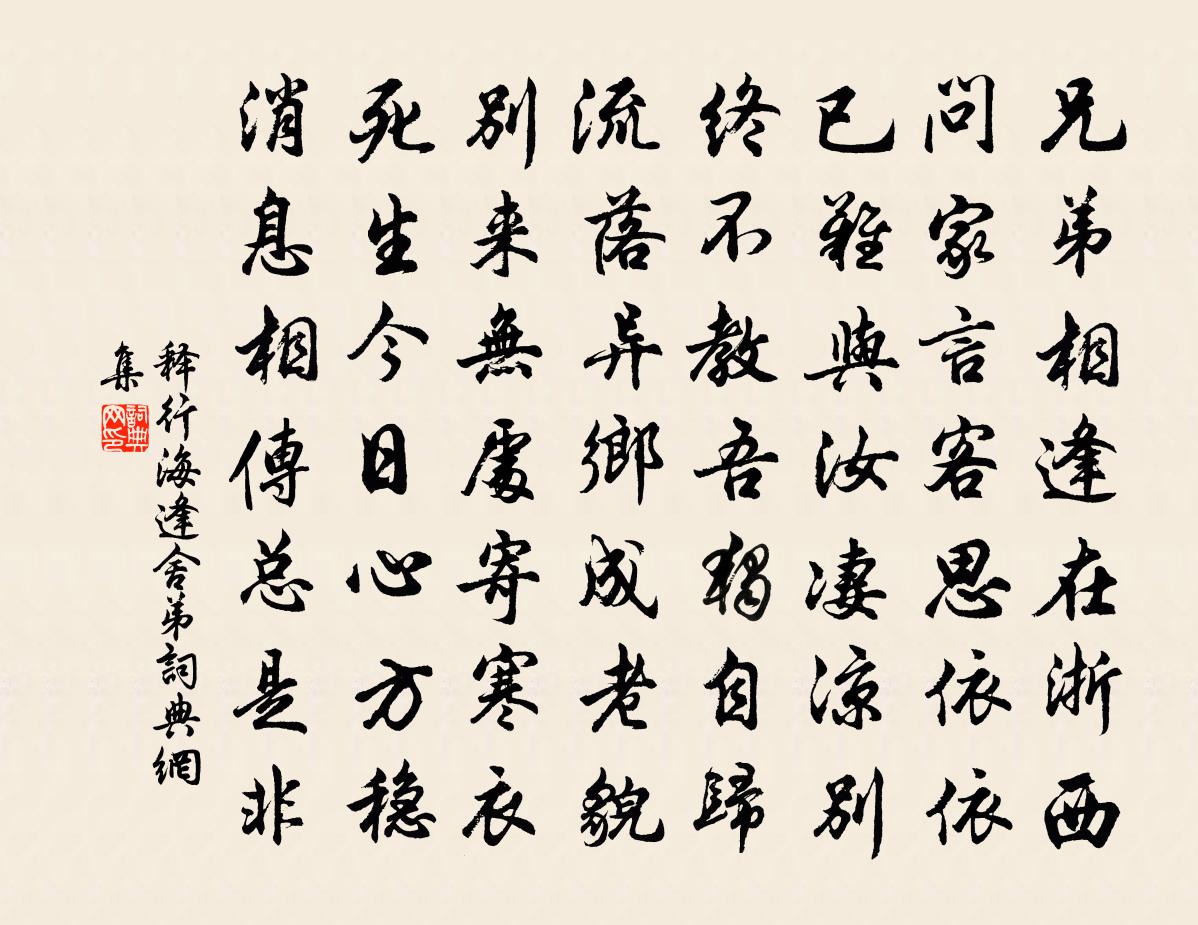 兄弟相逢在浙西
問家言客思依依
已難與汝凄涼别
終不教吾獨自歸
流落异鄉成老貌
别来無處寄寒衣
死生今日心方穩
消息相傳总是非
释行海逢舍弟詞典網
集
詞典网印